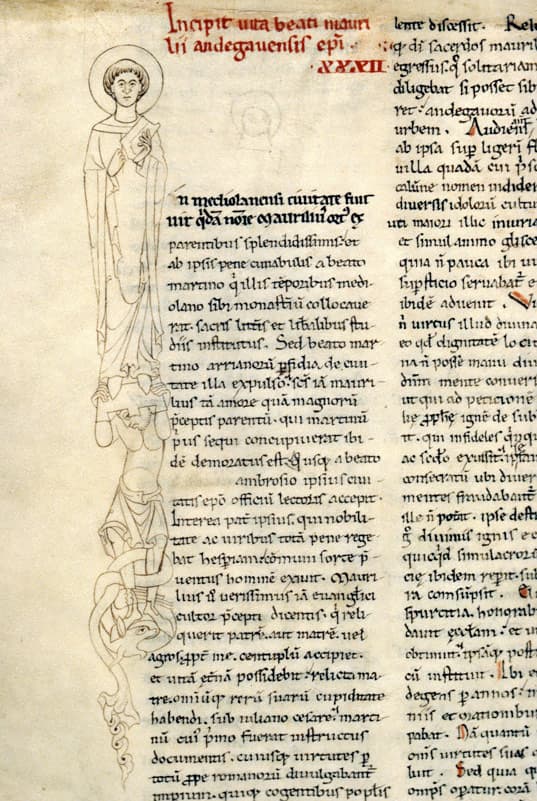 Incipit vita beati mauri
lii andegavensis epi.
XXXII
In mediolanensi civitate fuit
vir qdā noīe Maurilius ort' ex
parentibus splendidissimis. ot
ab ipsis pene cunabulis a beato
martino q illis tēporibus medi
olano sibi monastīu collocave
rat. sacris littis et libalibus stu
diis institutus. Sed beato mar
tino arrianorū pfidia de civi
tate illa expulso. scs iā mauri
lius tā amore quā magnorū
pceptis parentū. qui martinū
pius sequi concupiverat ibi
dē demoratus est. Quisq a beato
ambrosio ipsius civi
tatis epo officiū lectoris accepit.
Interea pat ipsius, qui nobili
tate ac viribus totā pene rege
bat hesperiam. cōmuni sorte p
ventus hominē exuit. Mauri
lius ū verissimus iā euanglici
cultor pcepti dicentis. q reli
querit patrē. aut matrē. vel
agros. ppt me. centuplū accipiet.
et vitā etnā possidebit. relicta ma
tre. omiūq rerū suarū cupiditate
habendi. sub iuliano cesare. marti
nū cui' pmo fuerat instructus
documentis. cuiusq virtutes p
totū ppe romanorū divulgabant
imperium. quiq cogentibus poplis
lente discessit.
q di sacerdos mauril
egressus. q solitariam
diligebat si posset sib
ret. andegavorū ad
urbem. Audiens
ab ipsa sup ligeri fl
villa quadā cui p sc
calūne nomen indider
diversis idolorū cultu
uti maiori illic iniuria
et simul animo glisce
quia n pauca ibi
supsticio servabat
ibidē advenit.
n virtus illud divina
eo qd dignitatē lo
na n posse manu
diūm mente convers
ut qui ad peticionē
lie pphe ignē de sub
it. qui infideles
ac seclo exussit. ipsam
consecratū ubi diver
mentes fraudabant
ille n potat. ipse dest
divinus ignis e c
quicqd simulacror
cie ibidem repit. sub
ra comsūpsit.
spurcitia. honorab
davit ecclam. et
obtinuit. ipsaq post
cū instituit. Ibi e
degens p annos.
niis et orationibus
pabat. Nā quantū
oms virtutes suas
luit. Sed qua
omps operatur. corā